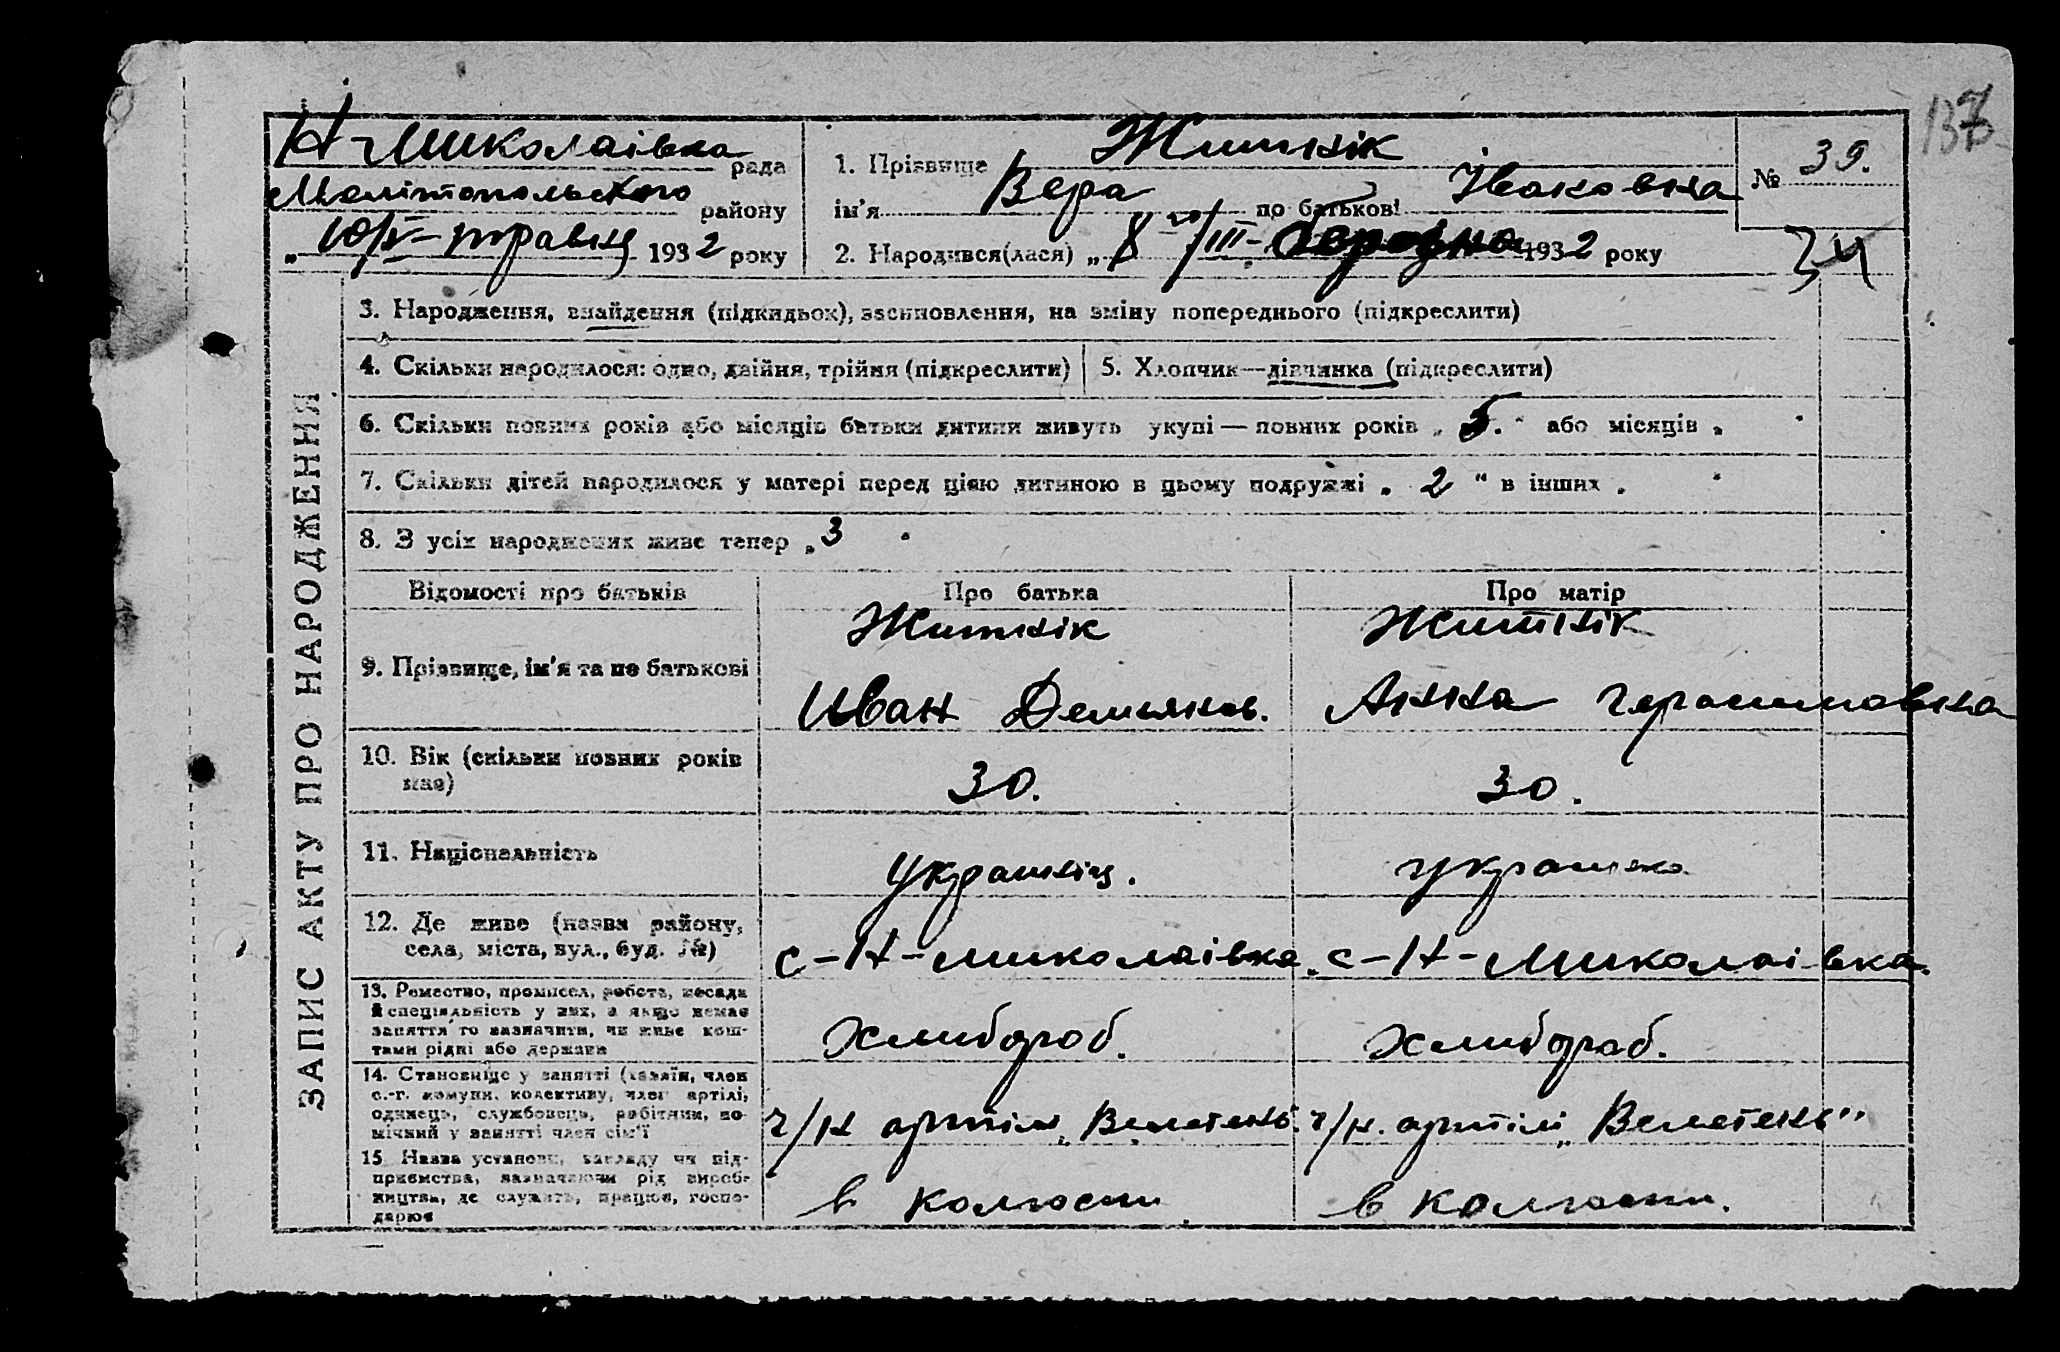 137
Н-Миколаівка рада
Мелітопольского району
„10/V- травня 1932 року
1. Прізвище Житнік
ім'я Вера по батькові Івановна
2. Народився(лася) „8/III- 1932 року
№ 39.
34
ЗАПИС АКТУ ПРО НАРОДЖЕННЯ
3. Народження, знайдення (підкидьок), усиновлення, на зміну попереднього (підкреслити)
4. Скільки народилося: одно, двійня, трійня (підкреслити)
5. Хлопчик—дівчинка (підкреслити)
6. Скільки повних років або місяців батьки дитини живуть укупі — повних років „5." або місяців „
7. Скільки дітей народилося у матері перед цією дитиною в цьому подружжі „2" в інших „
8. З усіх народжених живе тепер „3
Відомості про батьків
Про батька
Про матір
9. Прізвище, ім'я та по батькові
Житнік
Иван Демьянов.
Житнік
Анна Герасимовна
10. Вік (скільки повних років
має)
30.
30.
11. Національність
Українець.
Українка
12. Де живе (назва району,
села, міста, вул., буд. №)
с-Н-Миколаівка.
с-Н-Миколаівка.
13. Ремество, промисел, робота, посада
й спеціяльність у них, а якщо немає
заняття то зазначити, чи живе кош-
тами рідні або держави
Хлибороб.
Хлибороб.
14. Становище у занятті (хазяїн, член
с.-г. комуни, колективу, член артілі,
одинець, службовець, робітник, по-
мічний у занятті член сім'ї
ч/н артіли „Велетень".
ч/н. артілі „Велетень"
15. Назва установи, закладу чи під-
приємства, зазначаючи рід вироб-
ництва, де служить, працює, госпо-
дарює
в колгоспи.
в колгоспи.